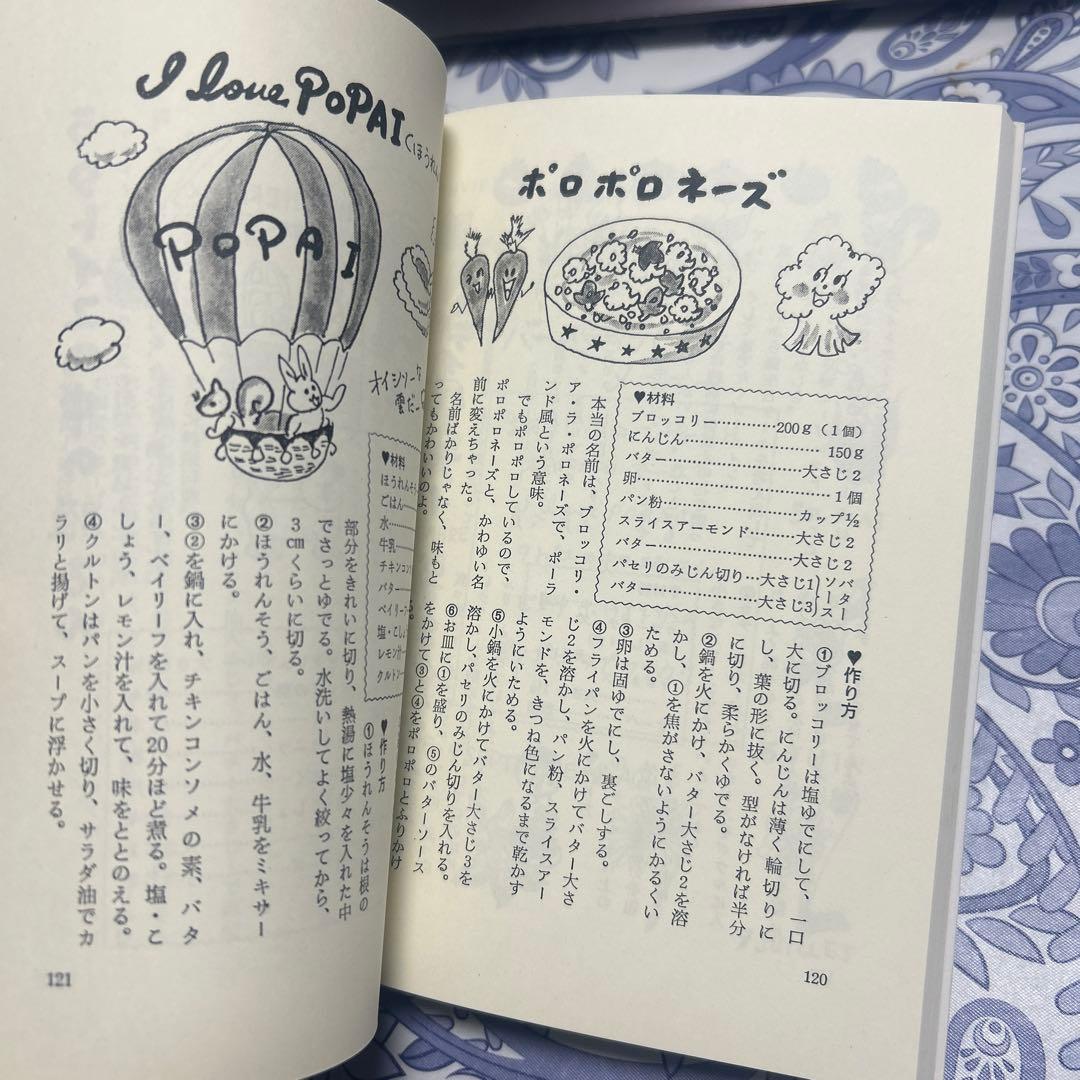 ポロポロネーズ
本当の名前は、ブロッコリ・
ア・ラ・ポロネーズで、ポーラ
ンド風という意味。
でもポロポロしているので、
ポロポロネーズと、かわゆい名
前に変えちゃった。
名前ばかりじゃなく、味もと
ってもかわいいのよ。
♥材料
ブロッコリー…………200g(1個)
にんじん……………………150g
バター……………………大さじ2
卵……………………………1個
パン粉……………………カップ½
スライスアーモンド……大さじ2
バター……………………大さじ2
パセリのみじん切り…大さじ1
バター……………………大さじ3
バター
ソース
♥作り方
①ブロッコリーは塩ゆでにして、一口
大に切る。にんじんは薄く輪切りに
し、葉の形に抜く。型がなければ半分
に切り、柔らかくゆでる。
②鍋を火にかけ、バター大さじ2を溶
かし、①を焦がさないようにかるくい
ためる。
③卵は固ゆでにし、裏ごしする。
④フライパンを火にかけてバター大さ
じ2を溶かし、パン粉、スライスアー
モンドを、きつね色になるまで乾かす
ようにいためる。
⑤小鍋を火にかけてバター大さじ3を
溶かし、パセリのみじん切りを入れる。
⑥お皿に①を盛り、⑤のバターソース
をかけて③と④をポロポロとふりかけ
120
I love POPAI
くほうれん
POPAI
オイシソーな
雲だー
♥材料
ほうれんそう
ごはん
水
牛乳
チキンコン
バター
ベイリーフ
塩・こしょう
レモン汁
クルトン
♥作り方
①ほうれんそうは根の
部分をきれいに切り、熱湯に塩少々を入れた中
でさっとゆでる。水洗いしてよく絞ってから、
3cmくらいに切る。
②ほうれんそう、ごはん、水、牛乳をミキサー
にかける。
③②を鍋に入れ、チキンコンソメの素、バタ
ー、ベイリーフを入れて20分ほど煮る。塩・こ
しょう、レモン汁を入れて、味をととのえる。
④クルトンはパンを小さく切り、サラダ油でカ
ラリと揚げて、スープに浮かせる。
121